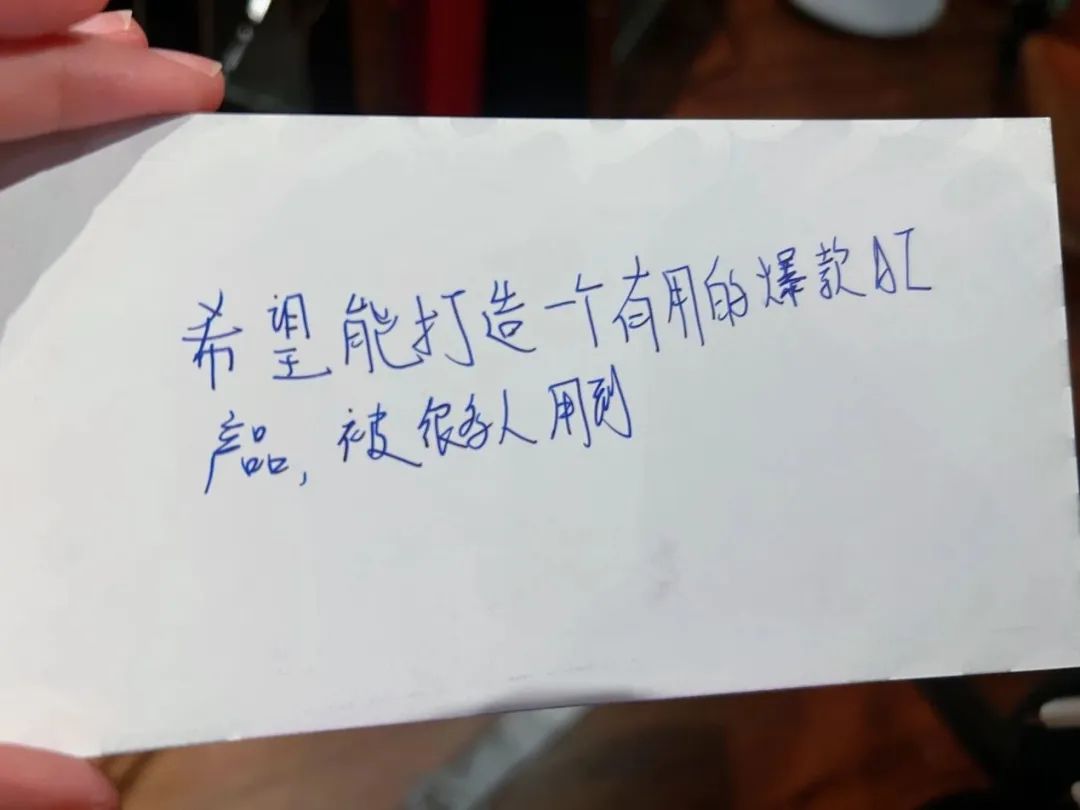 希望能打造一个有用的爆款AI
产品，被很多人用到